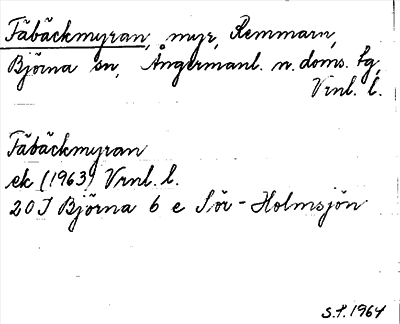 Fäbäckmyran, myr, Remmarn,
Björna sn, Ångermanl. n. doms. lg,
Vrnl. l.
Fäbäckmyran
ek (1963) Vrnl. l.
20 J Björna 6 e Sör-Holmsjön
S.F. 1964